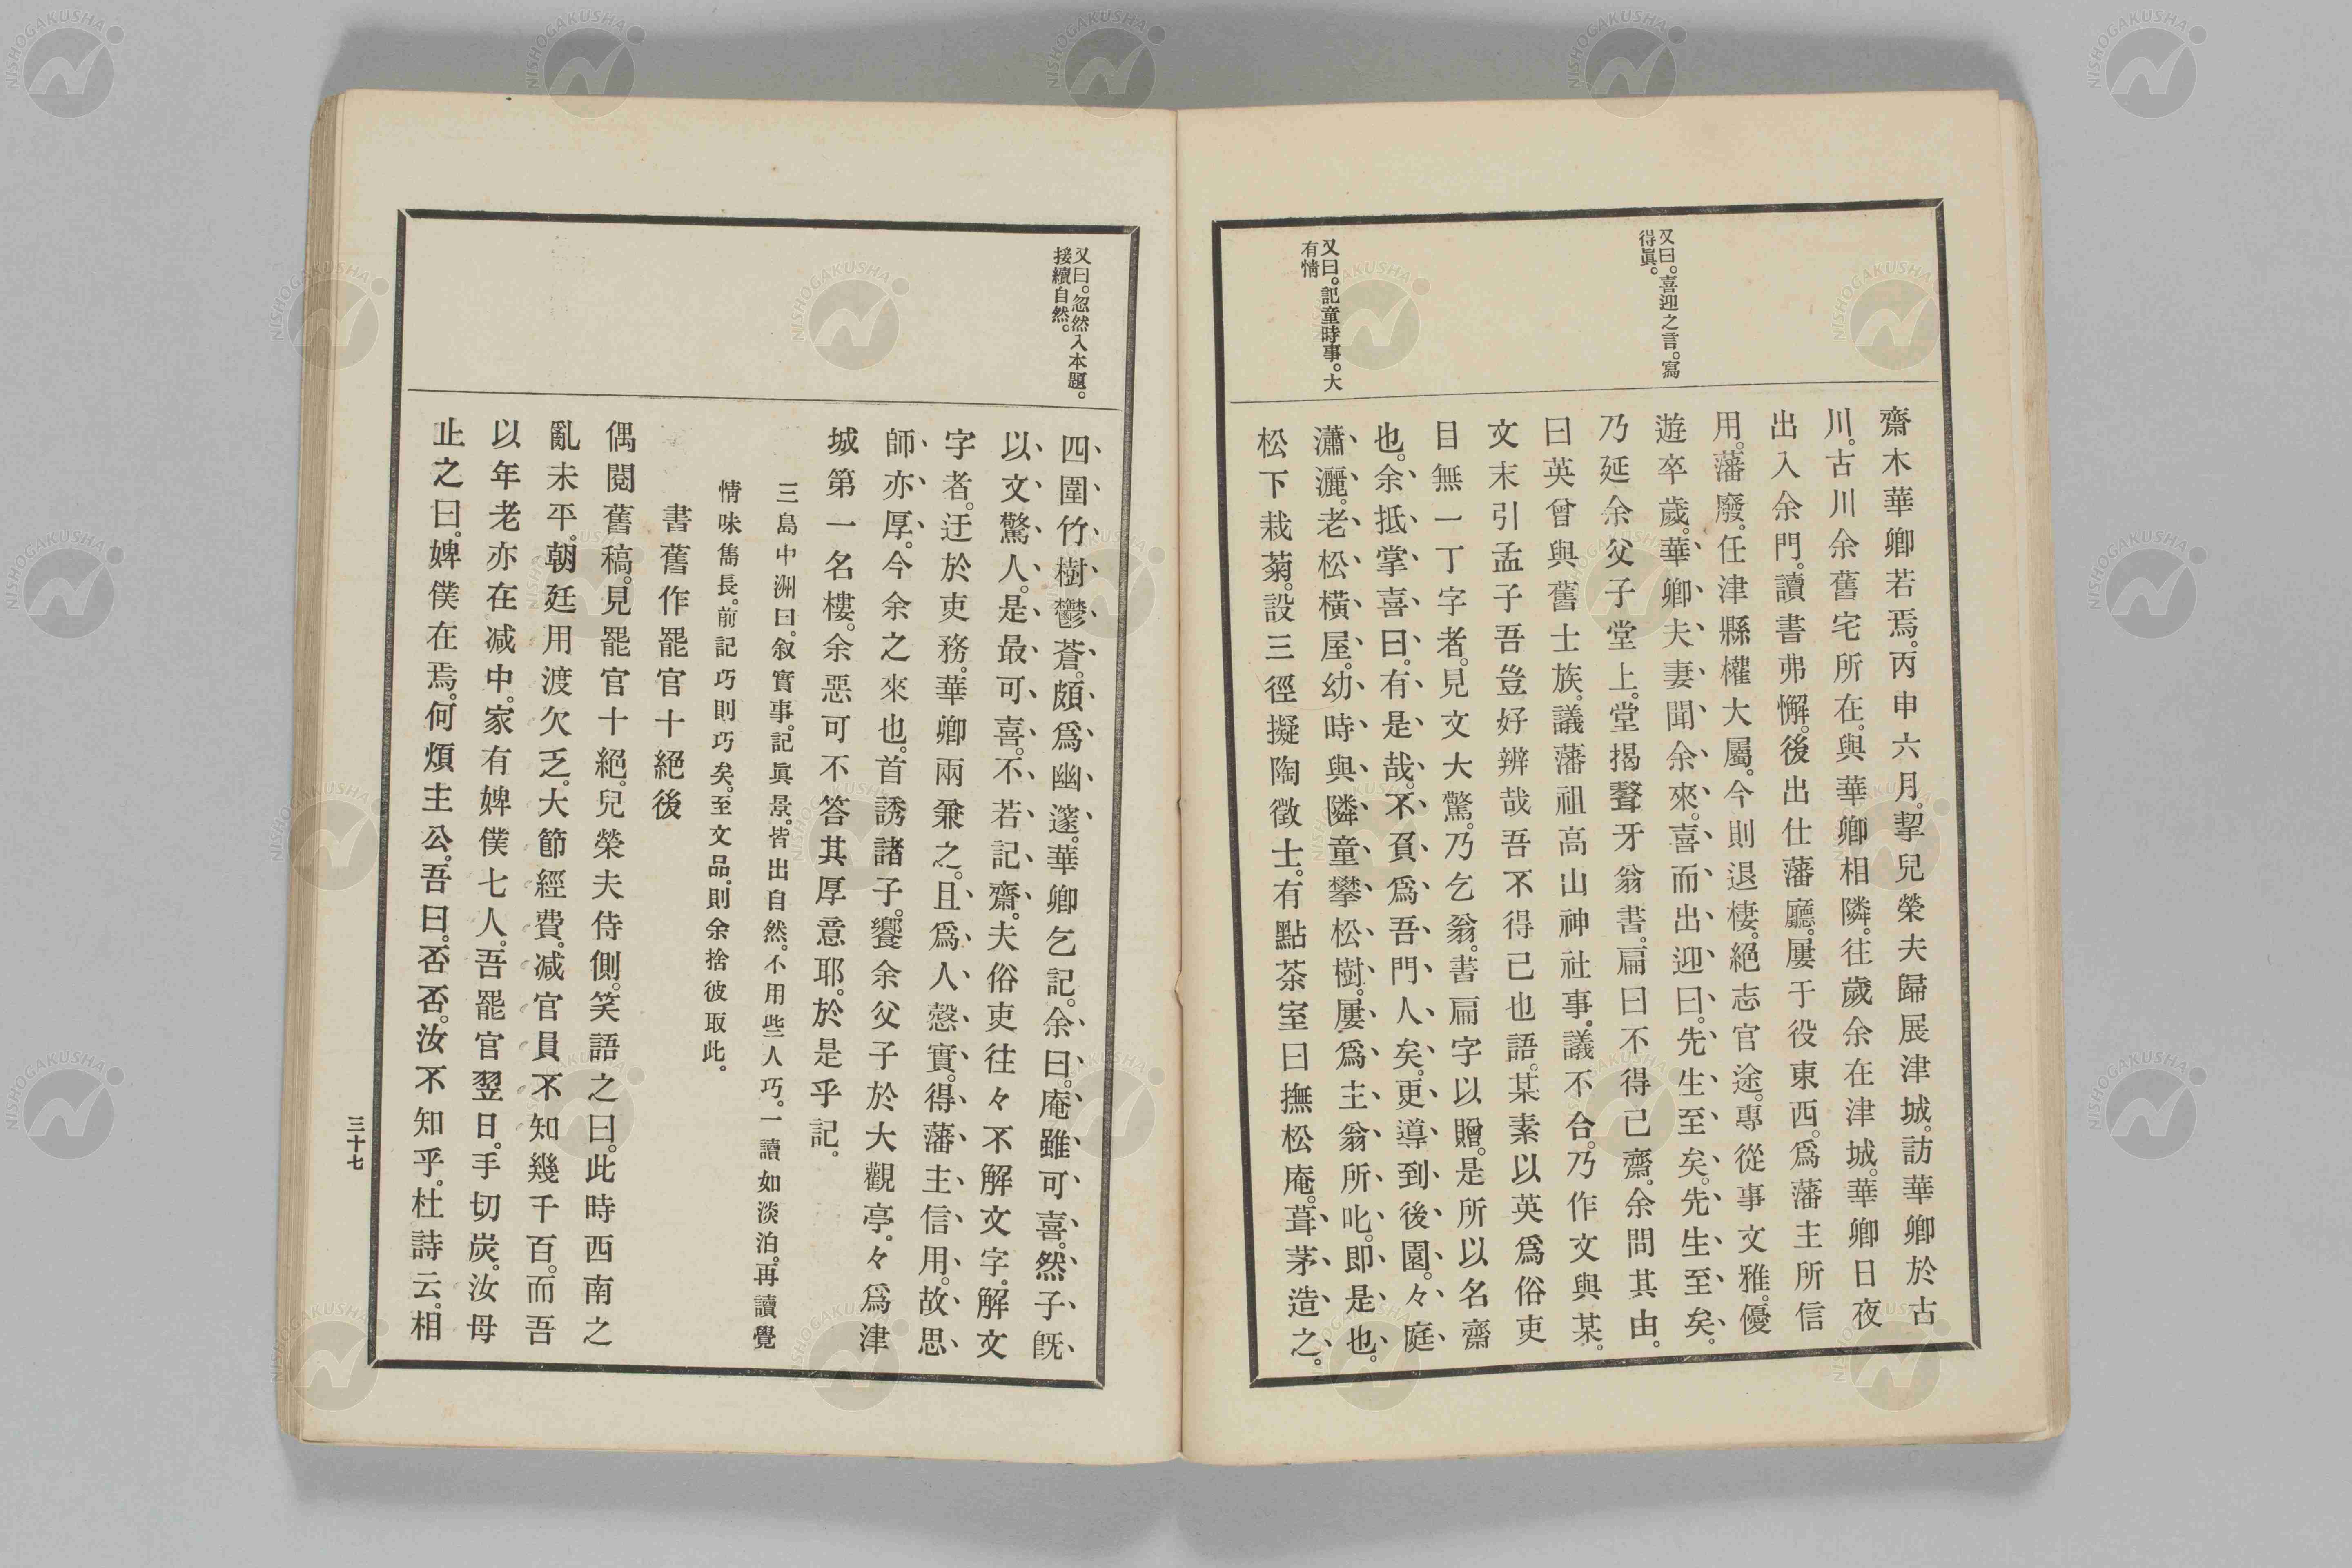 又曰。喜迎之言。寫
得眞。
又曰。記童時事。大
有情
齋木華卿若焉。丙申六月。挈兒榮夫歸展津城。訪華卿於古
川。古川余舊宅所在。與華卿相隣。往歲余在津城。華卿日夜
出入余門。讀書弗懈。後出仕藩廳。屢于役東西。爲藩主所信
用。藩廢。任津縣權大屬。今則退棲。絕志官途。專從事文雅。優
遊卒歲。華卿夫妻聞余來。喜而出迎曰。先生至矣。先生至矣。
乃延余父子堂上。堂揭聱牙翁書。扁曰不得已齋。余問其由。
曰英曾與舊士族。議藩祖高山神社事。議不合。乃作文與某。
文末引孟子吾豈好辨哉吾不得已也語。某素以英爲俗吏
目無一丁字者。見文大驚。乃乞翁。書扁字以贈。是所以名齋
也。余抵掌喜曰。有是哉。不負爲吾門人矣。更導到後園。々庭
瀟灑。老松橫屋。幼時與隣童攀松樹。屢爲主翁所叱。即是也。
松下栽菊。設三徑擬陶徵士。有點茶室曰撫松庵。葺茅造之。
又曰。忽然入本題。
接續自然。
四圍竹樹鬱蒼。頗爲幽邃。華卿乞記。余曰。庵雖可喜。然子既
以文驚人。是最可喜。不若記齋。夫俗吏往々不解文字。解文
字者。迂於吏務。華卿兩兼之。且爲人慤實。得藩主信用。故思
師亦厚。今余之來也。首誘諸子。饗余父子於大觀亭。々爲津
城第一名樓。余惡可不答其厚意耶。於是乎記。
三島中洲曰。敘實事。記眞景。皆出自然。不用些人巧。一讀如淡泊。再讀覺
情味雋長。前記巧則巧矣。至文品。則余捨彼取此。
書舊作罷官十絕後
偶閱舊稿。見罷官十絕。兒榮夫侍側。笑語之曰。此時西南之
亂未平。朝廷用渡欠乏。大節經費。減官員不知幾千百。而吾
以年老亦在减中。家有婢僕七人。吾罷官翌日。手切炭。汝母
止之曰。婢僕在焉。何煩主公。吾曰。否否。汝不知乎。杜詩云。相
三十七